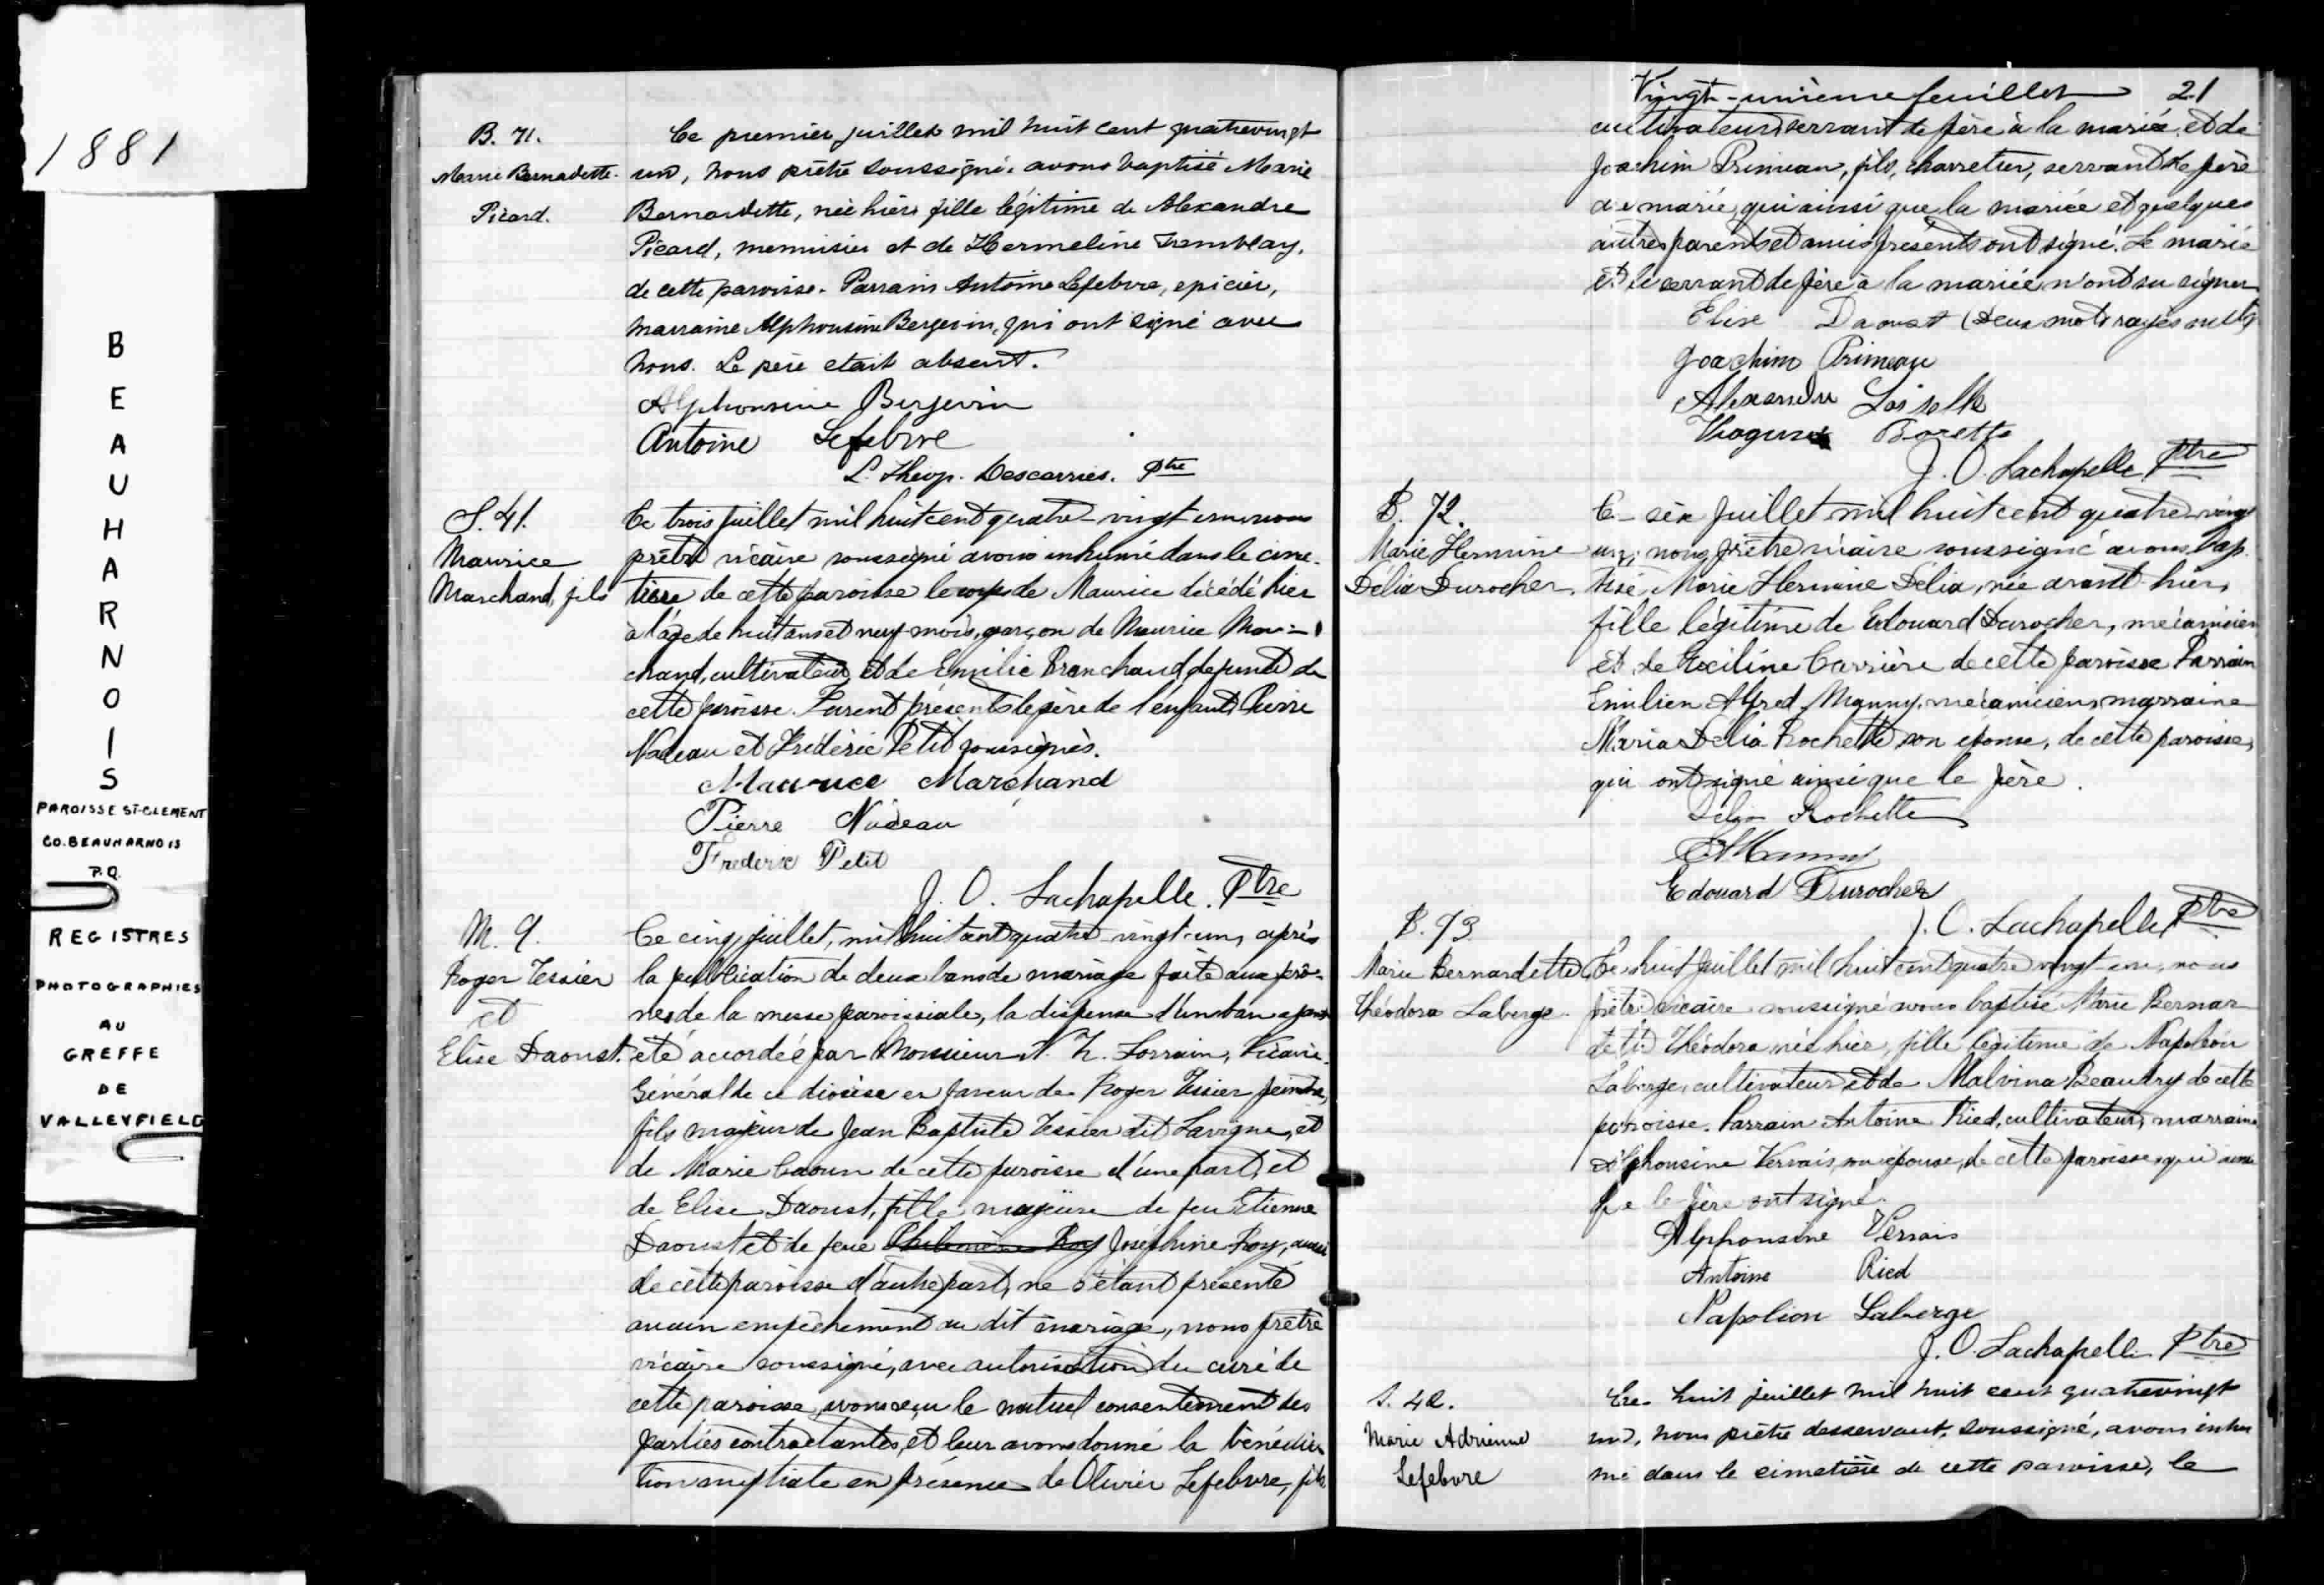 1881
BEAUHARNOIS
PAROISSE ST-CLEMENT
CO. BEAUHARNOIS
P.Q.
REGISTRES
PHOTOGRAPHIES
AU
GREFFE
DE
VALLEYFIELD
B. 71.
Marie Bernadette
Picard.
Ce premier juillet mil huit cent quatrevingt
un, nous prêtre soussigné avons baptisé Marie
Bernardette, née hier fille légitime de Alexandre
Picard, menuisier et de Hermeline Tremblay,
de cette paroisse. Parrain Antoine Lefebvre, epicier,
marraine Alphonsine Bergevin, qui ont signé avec
nous. Le père etait absent.
Alphonsine Bergevin
Antoine Lefebvre
L. Theop. Descarries. Ptre
S. 41.
Maurice
Marchand, fils
Ce trois juillet mil huit cent quatre-vingt un nous
prêtre vicaire soussigné avons inhumé dans le cime-
tière de cette paroisse le corps de Maurice décédé hier
à l'âge de huit ans et neuf mois, garçon de Maurice Mar-
chand, cultivateur et de Emilie Branchaud defunte de
cette paroisse. Furent présents le père de l'enfant, Pierre
Nadeau et Frédéric Petit soussignés.
Maurice Marchand
Pierre Nadeau
Frederic Petit
J. O. Lachapelle. Ptre
M. 9.
Roger Tessier
et
Elise Daoust.
Ce cinq juillet, mil huit cent quatre-vingt-un, après
la publication de deux bans de mariage faite aux prô-
nes de la messe paroissiale, la dispense d'un ban ayant
été accordée par Monsieur N. Z. Lorrain, Vicaire
Général de ce diocèse en faveur de Roger Tessier peintre,
fils majeur de Jean Baptiste Tessier dit Lavigne, et
de Marie Caoun de cette paroisse d'une part, et
de Elise Daoust, fille majeure de feu Etienne
Daoust et de feue Philomène Roy Joséphine Roy, aussi
de cette paroisse d'autre part, ne s'étant présenté
aucun empêchement au dit mariage, nous prêtre
vicaire soussigné, avec autorisation du curé de
cette paroisse, avons reçu le mutuel consentement des
parties contractantes, et leur avons donné la bénédic
tion nuptiale en présence de Olivier Lefebvre, fils
Vingt-unième feuillet 21
cultivateur, servant de père à la mariée, et de
Joachim Primeau, fils, charretier, servant de père
au marié, qui ainsi que la mariée et quelques
autres parents et amis présents ont signé. Le marié
et le servant de père à la mariée n'ont su signer
Elise Daoust (Deux mots rayés nuls)
Joachim Primeau
Alexandre Loiselle
J. O. Lachapelle Ptre
B. 72.
Marie Hermine
Délia Durocher.
Ce six Juillet mil huit cent quatre-vingt
un, nous prêtre vicaire soussigné avons bap
tisé, Marie Hermine Délia, née avant-hier,
fille légitime de Edouard Durocher, mécanicien
et de Exiline Carrière de cette paroisse Parrain
Emilien Alfred Manny, mécanicien, marraine
Maria Délia Rochette son épouse, de cette paroisse,
qui ont signé ainsi que le père.
Délia Rochette
EAManny
Edouard Durocher
J. O. Lachapelle Ptre
B. 73
Marie Bernardette
Théodora Laberge.
Ce huit juillet mil huit cent quatre vingt-un, nous
prêtre vicaire soussigné avons baptisé Marie Bernar
dette Théodora, née hier, fille légitime de Napoléon
Laberge, cultivateur et de Malvina Beaudry de cette
paroisse. Parrain Antoine Ried, cultivateur, marraine
Alphonsine Vervais, son épouse, de cette paroisse, qui ainsi
que le père ont signé.
Alphonsine Vervais
Antoine Ried
Napoleon Laberge
J. O. Lachapelle Ptre
S. 42.
Marie Adrienne
Lefebvre
Ce huit juillet mil huit cent quatrevingt
un, nous prêtre desservant, soussigné, avons inhu
mé dans le cimetière de cette paroisse, le